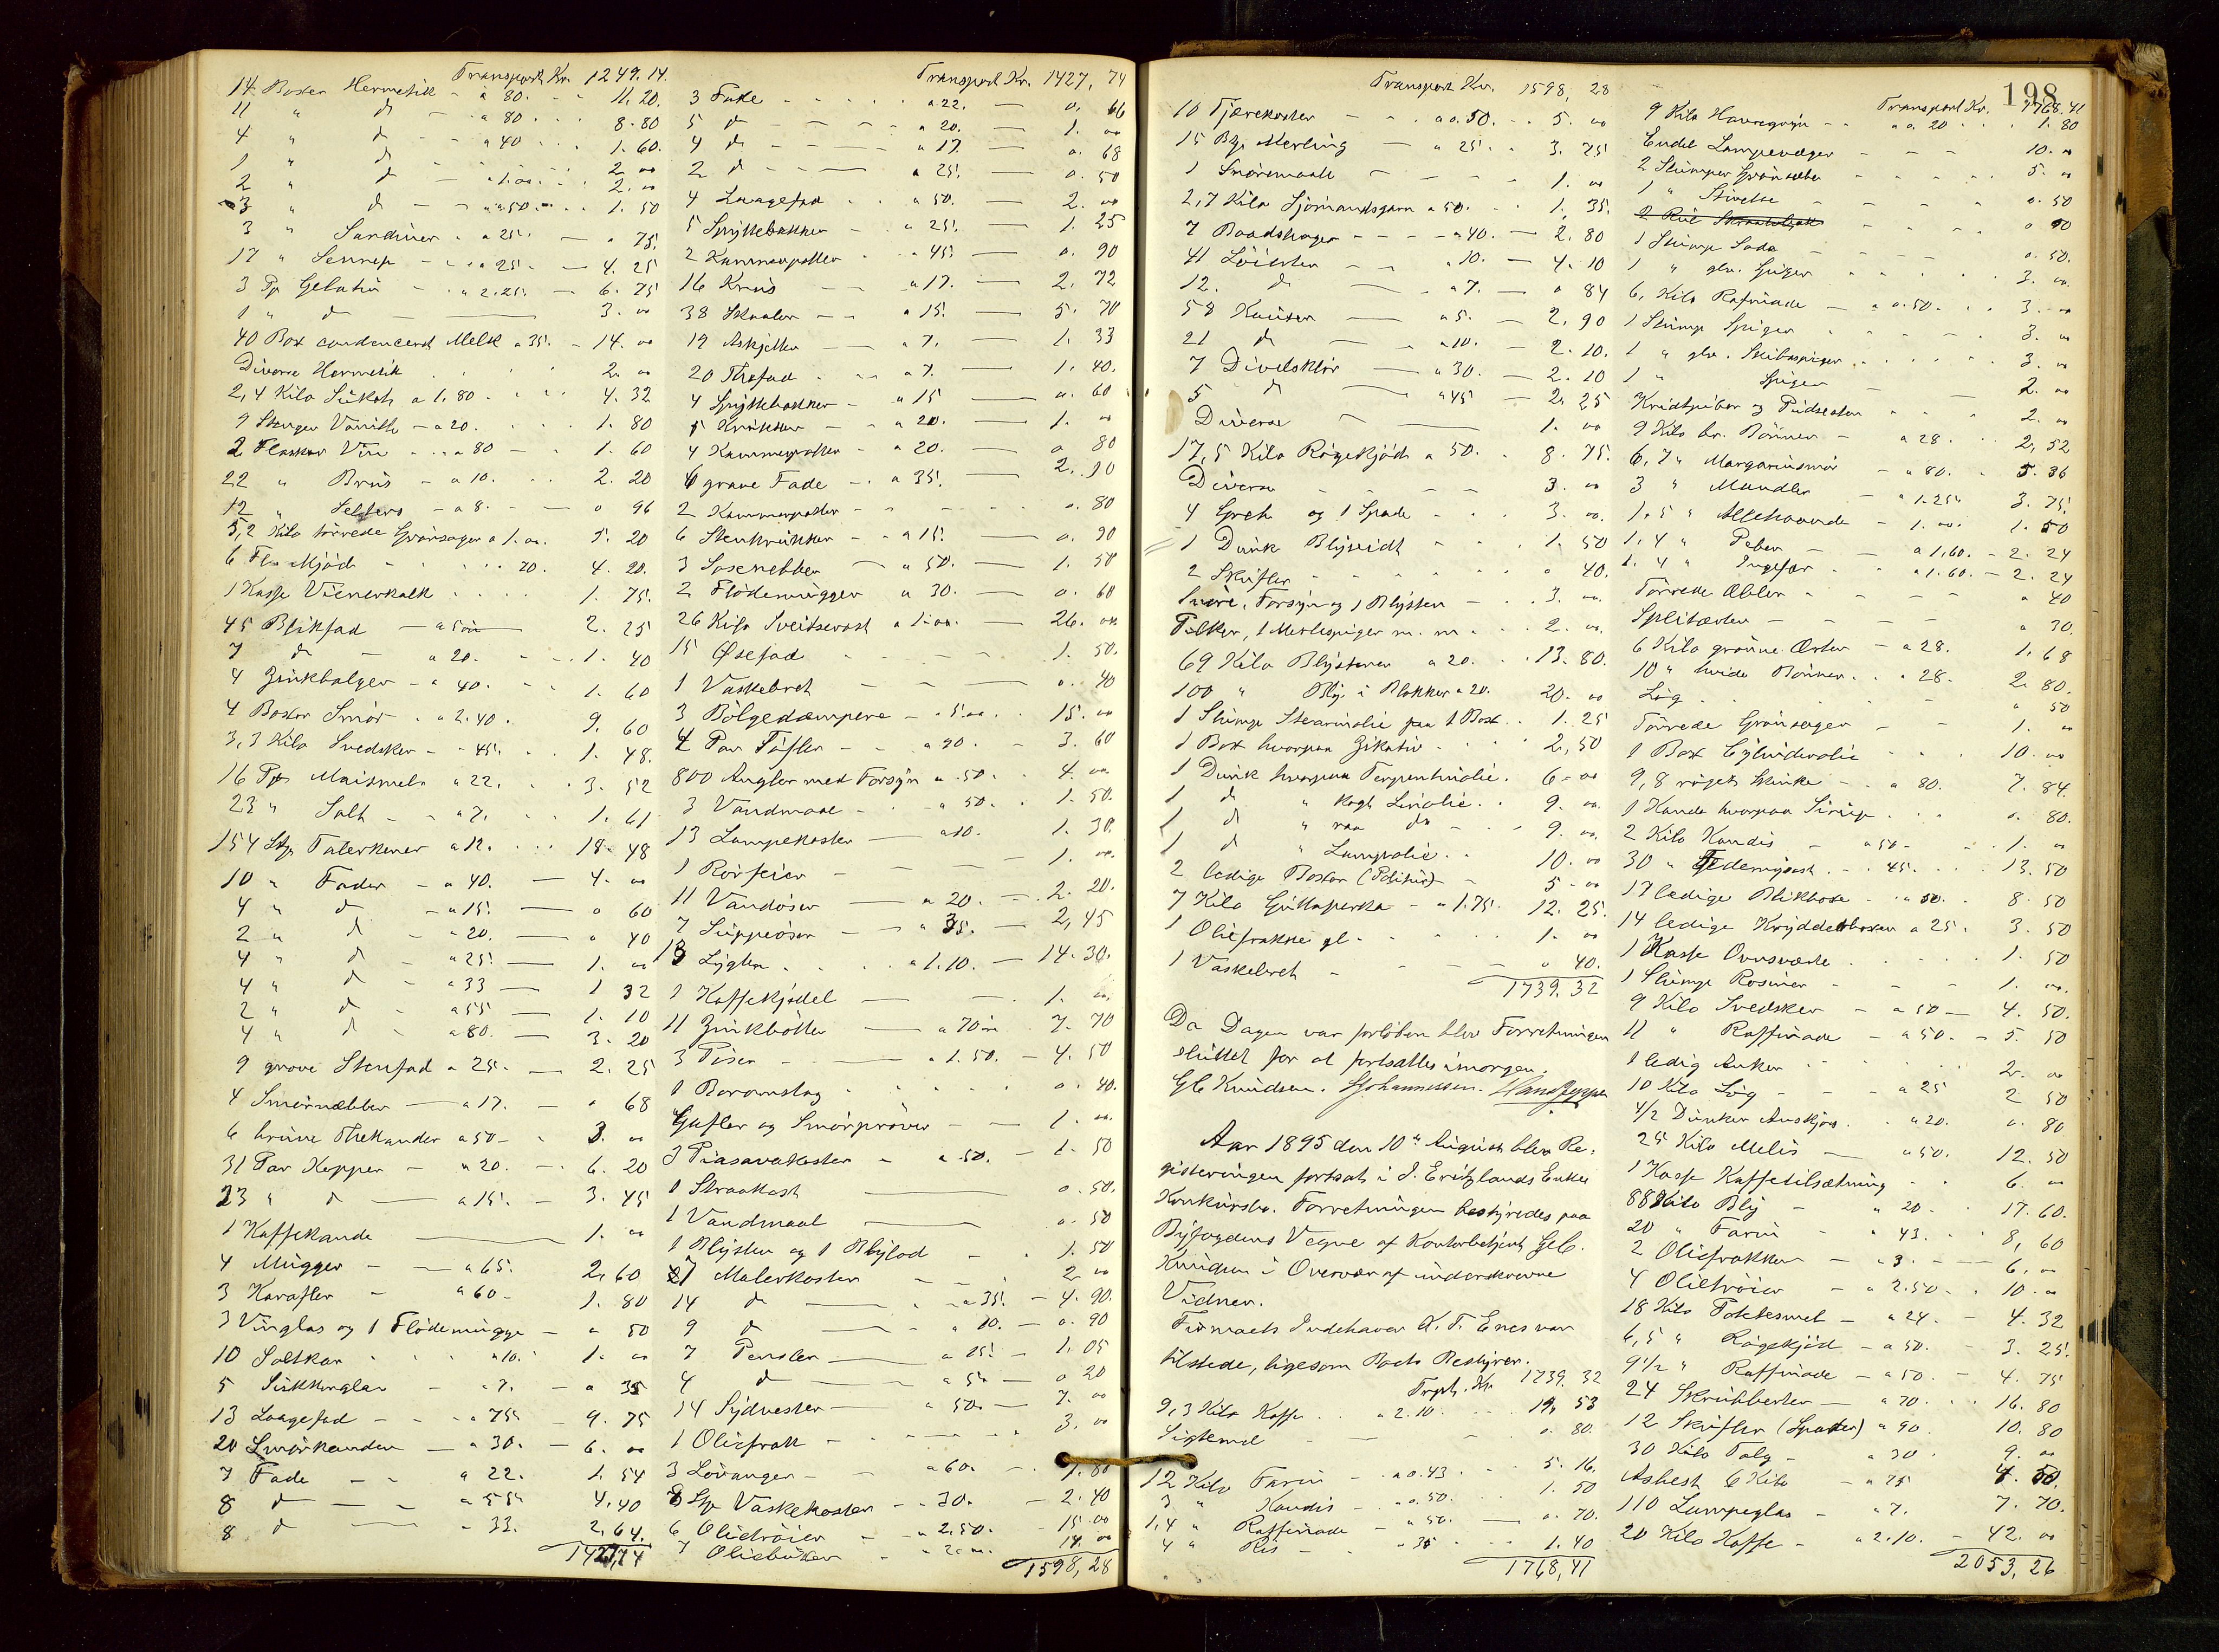 Transport Kr. 1249.14.
14 Boxer Hermetik - a 80. - 11.20.
11 " do - a 80 . . . 8.80
4 " do - a 40 . . . 1.60.
1 " do - 2.00
2 " do - a 1.00 . . 2.00
3 " do - a 0.50 . . 1.50
3 " Sardiner . a 25. - " 75.
17 " Sennep - a 25. - 4.25
3 Pk Gelatin - a 2.25. - 6.75
1 " do - 3.00
40 Box condencerd Melk a 35. - 14.00
Diverse Hermetik . . . 2.00
2,4 Kilo Sukat a 1.80 . . . 4.32
9 Stenger Vanille - a 20. . . . 1.80
2 Flasker Vin . . a 80 - . 1.60
22 " Brus - a 10. . . 2.20
12 " Selters - a 8. - - 0 96
5,2 Kilo törrede Grönsager a 1.00. 5.20
6 Fl Kjöd - . . . 70. 4.20.
1 Kasse Vienerkalk . . . . 1.75.
45 Blikfad - a 5 öre 2.25
7 do - a 20. - . . 1.40
4 Zinkbalger - a 40. - . 1.60
4 Boxer Smör - . a 2.40. . 9.60
3,3 Kilo Svedsker - - 45. . . 1.48.
16 Pk Maismel. a 22. . . 3.52
23 " Salt - - a 7. . . 1.61
154 Stk Talerkener a 12. . . . 18.48
10 " Fader - a 40. - 4.00
4 " do - a 15. - 0 60
2 " do - a 20. - 0 40
4 " do - a 25. - 1.00
4 " do - a 33 - 1 32
2 " do - a 55 - 1.10
4 " do - a 80. - 3.20
9 grove Stenfad a 25. - 2.25
4 Smörnæbber - a 17. - 0 68
6 brune Thekander a 50 - . 3.00
31 Par Kopper - a 20. - . 6.20
23 " do - a 15. - 3.45
1 Kaffekande - 1.00
4 Mugger - - a 65. 2,60
3 Karafler - a 60 - 1.80
3 Vinglas og 1 Flödemugge - 0 50
10 Saltkar . . . a 10. . 1.00
5 Sukkerglas - a 7. - 0 35
13 Laagefad - - a 75 - 9.75
20 Smörkander - a 30. - 6.00
7 Fade - - a 22. 1.54
8 do - - a 55 4.40
8 do - - 33. 2,64.
1427,74
Transport Kr. 1427,74
3 Fade - - - - a 22. - 0.66
5 do - - - - a 20. - 1.00
4 do - - - - a 17. - 0.68
2 do - - - a 25. - 0.50
4 Laagefad . . a 50. - 2.00
5 Spyttebakker - a 25. - 1.25
2 Kammerpotter - . a 45. 0.90
16 Krus - - a 17. - 2.72
38 Skaaler - - a 15. - 5.70
19 Askjetter - a 7. - 1.33
20 Thefad . - a 7. - 1.40.
4 Spyttebakker - a 15 - 0.60
5 Krukker - - a 20. - 1.00
4 Kammerpotter - a 20. 0 80
6 grave Fade - . a 35. - 2.10
2 Kammerpotter - - - - 0.80
6 Stenkrukker - - a 15. - 0.90
3 Sosenebber - a 50. - 1.50
2 Flödemugger a 30. - 0.60
26 Kilo Sveitserost a 1.00. - 26.00
15 Øsefad - - - - 1.50.
1 Vaskebret - - - 0.40
3 Bölgedæmpere - . 5.00. . 15.00
4 Par Töfler - - a 90. - 3.60
800 Angler med Forsyn a .50. . 4.00
3 Vandmaal - - a 50. . 1.50.
13 Lampekoster - a 10. 1.30.
1 Rörfeier - - - 1.00
11 Vandöser - a 20. - 2.20.
7 Suppeöser - - a 35. - 2,45
13 Lygter . . . a 1.10. - 14.30.
1 Kaffekjedel - - . 1.00
11 Zinkbötter - a 70 öre 7.70
3 Pöser - - a 1.50. - 4.50
1 Boromslag . . . . 0.40.
Gafler og Smörpröver - - 1.00
3 Piasavakoster - a .50. - 1.50
1 Straakost - 0.50.
1 Vandmaal - 0.50
1 Blysten og 1 Blylod - . 1.50
7 Malerkoster - - - 2.00
14 do - - a 35. - 4.90.
9 do - a 10. - 0.90
7 Pensler - a 15. - 1,05
4 do - a 5 - 0 20
14 Sydvester - a 50. - 7.00
1 Oliefrak - . . . 3.00
3 Lövanger - - a 60. - 1.80
8 Stk Vaskekoster - - 30. - 2.40
6 Olietröier - - a 2,50. - 15.00
7 Oliebuker . - a 2.00. 14.00
1598,28
198
Transport Kr. 1598,28
10 Tjærekoster - - . a 0.50. . . 5.00
15 Bg. Merling - a 25. . 3.75
1 Smöremaall - - - - 1.00
2,7 Kilo Sjömandsgarn a 50. - . 1,35.
7 Baadshager - - - - a 40. - 2.80
41 Löierter - - a 10. - 4.10
12. do - a 7. - 0 84
58 Kauser - a 5. - 2,90
21 do - a 10. - 2.10.
7 Divelsklör - a 30. - 2.10
5 do - a 45 - 2,25
Diverse - - 1.00
17,5 Kilo Rögekjöd a 50. . 8.75.
Diverse - - - - 3.00
4 Greb og 1 Spade - . . 3.00.
1 Dunk Blyhvidt - - . 1.50
2 Skufler - - - - 0 40.
Snöre, Forsyn og 1 Blysten - . . 3.00
Pilker, 1 Merlespiger m. m. . . 2.00.
69 Kilo Blystener a 20. . . 13.80.
100 " Bly i Blokker a 20. 20.00
1 Slump Stearinolie paa 1 Box . . 1.25
1 Box hvorpaa Zikativ . . . . 2,50
1 Dunk hvorpaa Terpentinolie. 6.00
1 do " kogt Linolie. . 9.00
1 do " raa do - . . 9.00.
1 do " Lampolie. . 10.00
2 ledige Boxer (Politur) - - 5.00
7 Kilo Guttaperka - - a 1.75. 12.25.
1 Oliefrakke gl. - - . . 1.00
1 Vaskebret - - - - 0 40.
1739.32
Da Dagen var forløben blev Forretningen
sluttet for at fortsættes imorgen.
Gb Knudsen. SJohannessen. Hans Jeppsen
Aar 1895 den 10de August blev Re-
gisteringen fortsat i J. Eritzlands Enkes
Konkursbo. Forretningen bestyredes paa
Byfogdens Vegne af Kontorbetjent Gb.
Knudsen i Overvær af underskrevne
Vidner.
Firmaets Indehaver K. T. Enes var
tilstede, ligesom Boets Bestyrer.
Trpt. Kr. 1739.32
9,3 Kilo Kaffe . . a 2.10. . . 19,53
Sigtemel - - - - 0.80.
12 Kilo Farin - . a 0.43 . . . 5.16.
3 " Kandis - . a 0.50. . . 1.50
1,4 " Raffinade - a 50. - 0.70.
4 " Ris - - . a 35 . . . 1.40
1768,41
Transport Kr. 1768.41
9 Kilo Havregryn - - a 0.20 . . . 1.80
Endel Lampevæger - - - 10.00
2 Slumper Grönsæbe . . . . 5.00
1 " Stivelse - - - 0.50
2 Rul 0 90
1 Slump Soda - - - 0.50.
1 " glv. Spiger . . . . 3.00.
6, Kilo Rafinade - a 0.50. . . 3.00
1 Slump Spiger . . . . 3.00
1 " glv. Skibsspiger . . . . 3.00
1 " Spiger - 2.00
Kridtpiber og Pudsesten . . . 2.00
9 Kilo br. Bönner - a 28. . . 2,52
6,7 " Margarinsmör - a 80. . 5.36
3 " Mandler - a 1.25 3.75.
1,5 " Allehaande - 1.00. 1.50
1,4 " Peber - - a 1,60. - 2.24
1,4 " Ingefær . . . a 1.60. - 2.24
Törrede Æbler - - - - 0 40
Spliterter - - - - 0 30.
6 Kilo grönne Erter - a 28. 1.68
10 " hvide Bönner . . a 28. 2.80.
Lög . . . . . 0 50
Törrede Grönsager - - 1.00
1 Box Cylinderolie . . . 10.00
9,8 röget Skinke - . a 80. 7.84.
1 Kande hvorpaa Sirup . . . 0.80.
2 Kilo Kandis - a 50 - . . 1.00
30 " Gedemysost . - . 45. . . 13.50
17 ledige Blikboxe . . a 50. . 8.50
14 ledige Krydderboxer a 25. 3.50
1 Kasse Ovnsværte . . . . 1.50
1 Slump Rosiner - - - 1.00.
9 Kilo Svedsker - a 50 - 4.50.
11 " Raffinade - a 50. - 5.50
1 ledig Anker . . . 2.00
10 Kilo Lög - - - a 25 2 50
4/2 Dunker Anskjos. . . a 20. 0.80
25 Kilo Melis - a 50. 12.50
1 Kasse Kaffetilsætning . . . 6.00
88 Kilo Bly - " 20 - . 17.60.
20 " Farin - " 43. . . 8,60
2 Oliefrakker - a 3. - 6.00
4 Olietröier - a 2.50. . 10.00
18 Kilo Potetesmel - a 24. - 4.32
6,5 " Rögekjöd - a 50. - 3.25.
9 1/2 " Raffinade - a 50. - 4.75
24 Skrubberter - a 70 . . . 16.80
12 Skufler (Spader) a 90. 10.80
30 Kilo Talg - a 30 . 9.00
Asbest 6 Kilo - a 75 4.50.
110 Lampeglas - a 7. 7.70.
20 Kilo Kaffe - a 2.10. - 42.00
2053,26